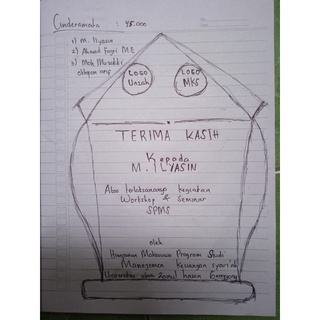 Cinderamata : 45.000
1) M. Ilyasin
2) Ahmad Fauzi M.E
3) Moh
LOGO
Unzah
LOGO
MKS
TERIMA KASIH
Kepada
M. ILYASIN
Atas terlaksananya kegiatan
Workshop & Seminar
SPMS
oleh
Himpunan Mahasiswa Program Studi
Manajemen Keuangan syari'ah
Universitas islam Zainul hasan Genggong